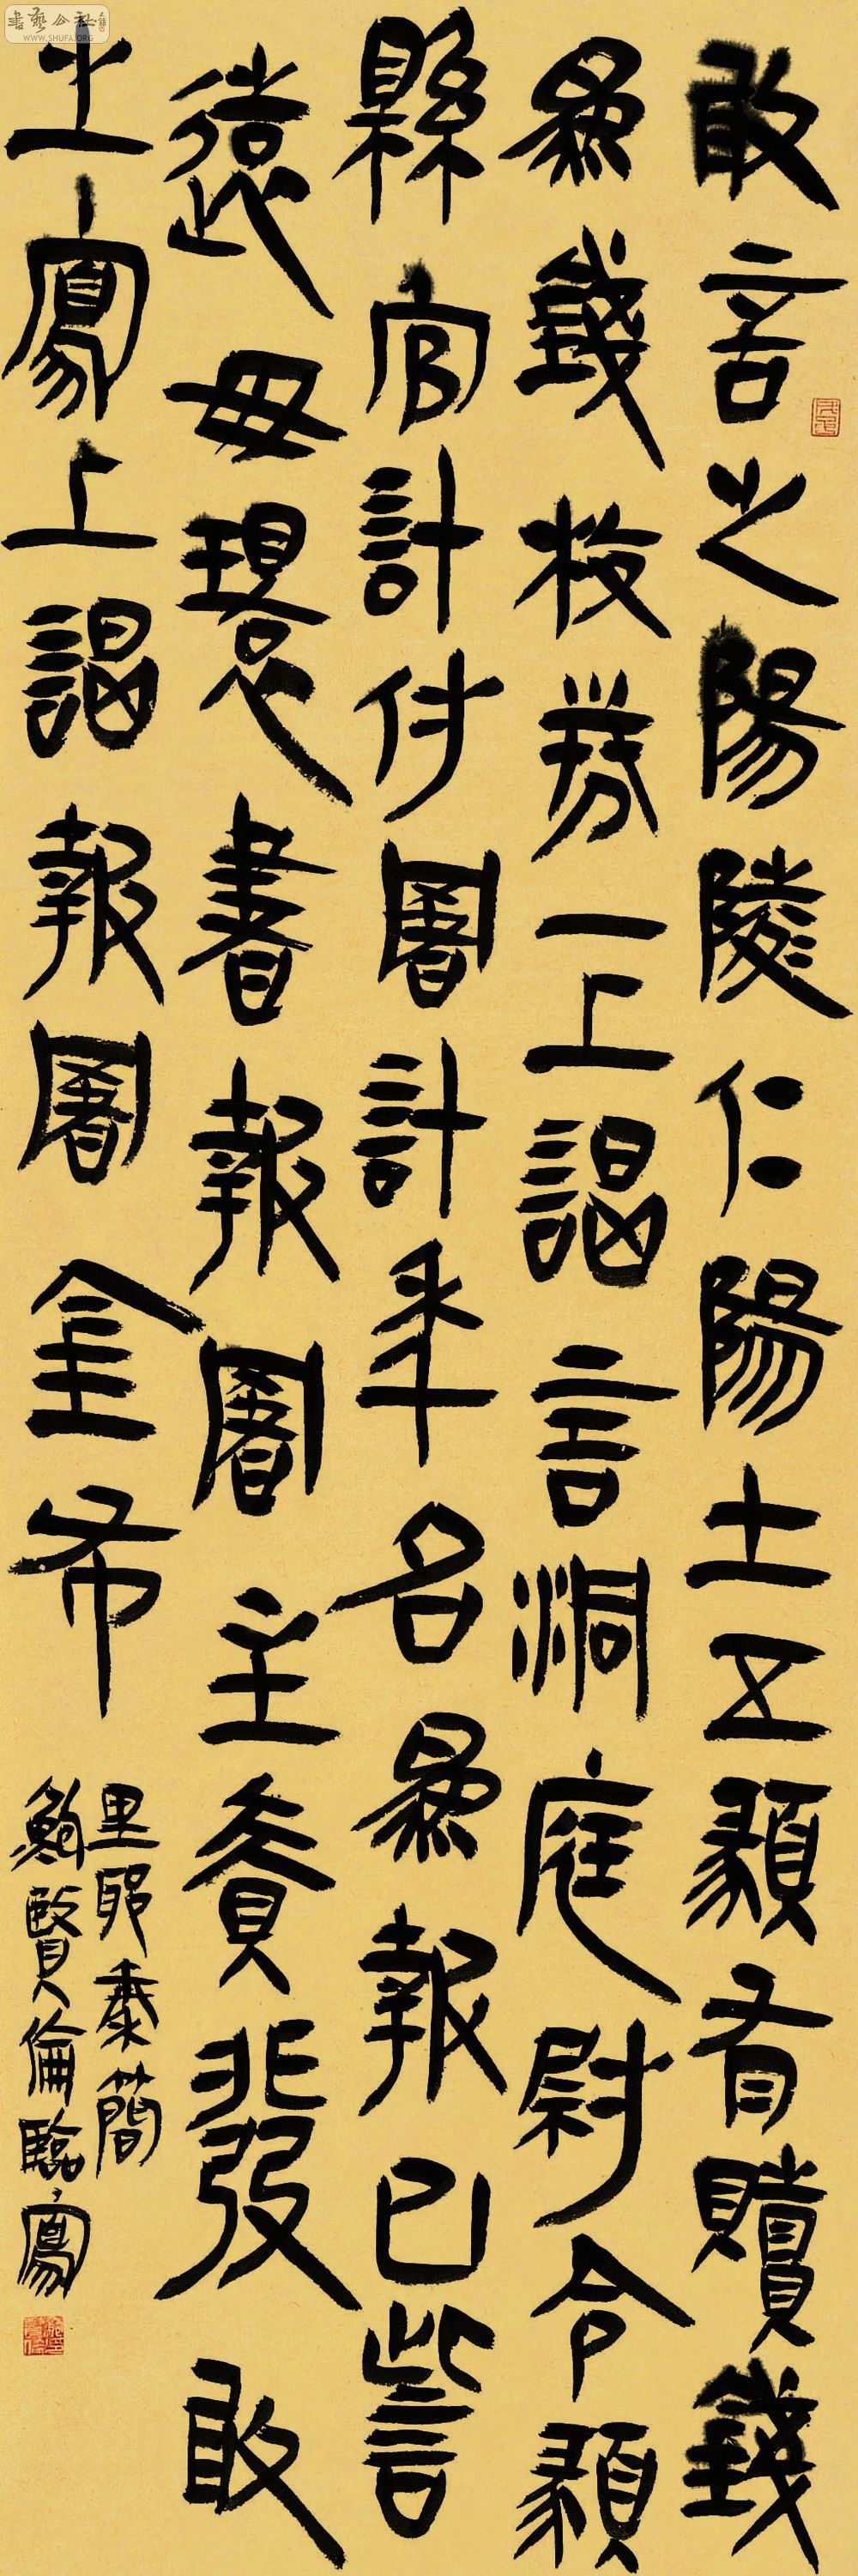 敢言之陽陵仁陽士五㒹有贖錢
㒹錢校券一上謁言洞庭尉令㒹
縣官計付署計年名爲報已訾
遠毋環書報署主責發敢
之寫上謁報署金布
里耶秦簡
鮑賢倫臨寫
書藝公社
WWW.SHUFA.ORG